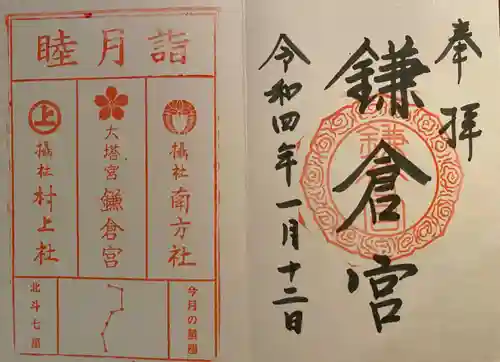 奉拝
鎌倉宮
令和四年一月十二日
睦月詣
摂社南方社
大塔宮鎌倉宮
上
摂社村上社
北斗七星